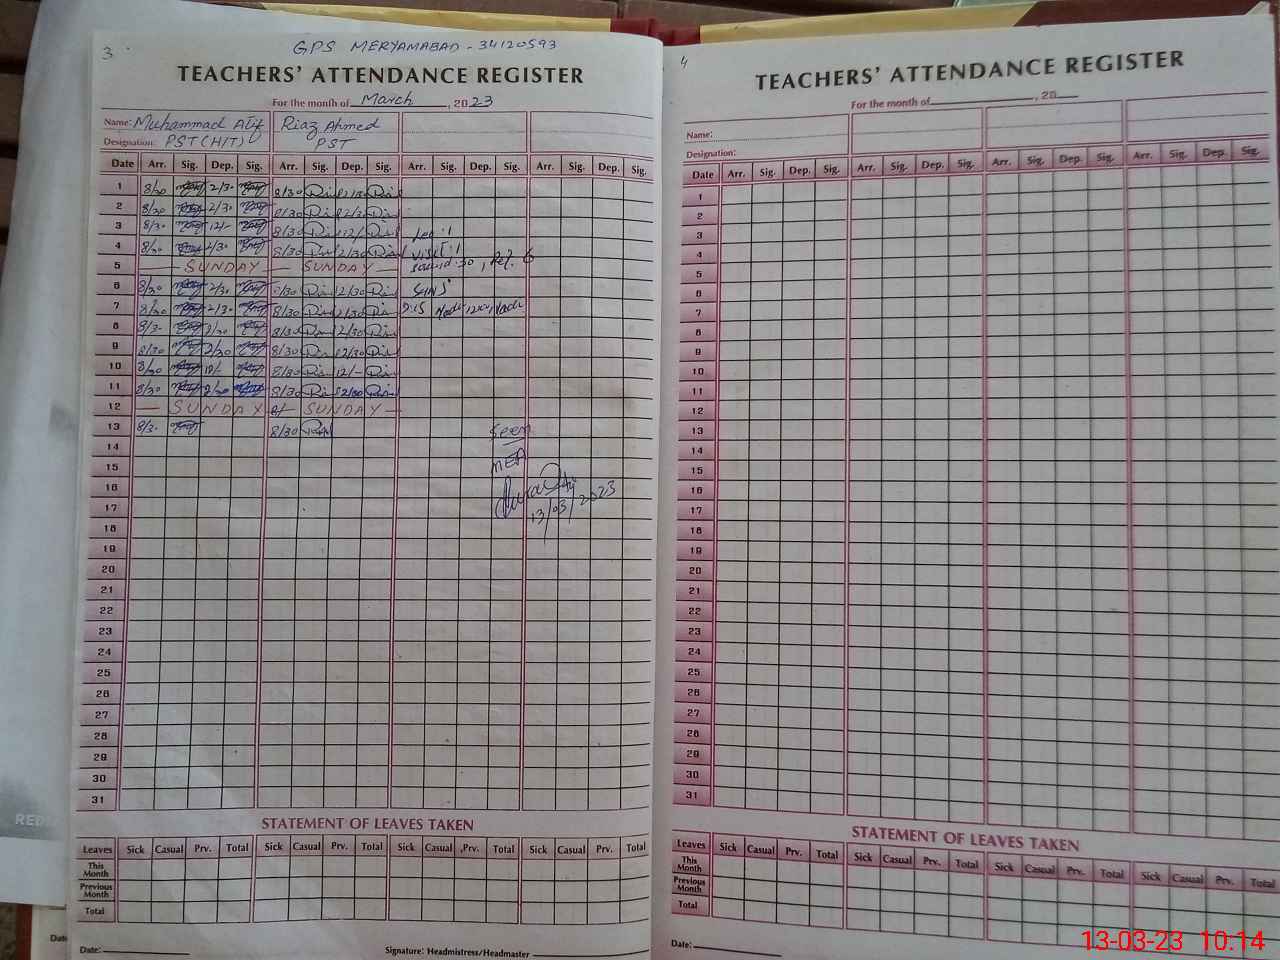 3
GPS MERYAMABAD - 34120593
TEACHERS' ATTENDANCE REGISTER
For the month of March, 2023
Name: Muhammad Atif Riaz Ahmed
Designation: PST (H/T) PST
Date Arr. Sig. Dep. Sig. Arr. Sig. Dep. Sig. Arr. Sig. Dep. Sig. Arr. Sig. Dep. Sig.
1 8/30 2/30 8/30 12/30
2 8/30 2/30 8/30 12/30
3 8/30 12/- 8/30 12/-
4 8/30 2/30 8/30 12/30
5 SUNDAY SUNDAY
6 8/30 2/30 8/30 12/30
7 8/30 2/30 8/30 12/30 9:15
8 8/30 2/30 8/30 12/30
9 8/30 2/30 8/30 12/30
10 8/30 12/- 8/30 12/-
11 8/30 2/30 8/30 12/30
12 SUNDAY SUNDAY
13 8/30 8/30 Seen
14
15 MEA
16
17 13/03/2023
18
19
20
21
22
23
24
25
26
27
28
29
30
31
STATEMENT OF LEAVES TAKEN
Leaves Sick Casual Prv. Total Sick Casual Prv. Total Sick Casual Prv. Total Sick Casual Prv. Total
This Month
Previous Month
Total
Date: Signature: Headmistress/Headmaster
4
TEACHERS' ATTENDANCE REGISTER
For the month of , 20
Name:
Designation:
Date Arr. Sig. Dep. Sig. Arr. Sig. Dep. Sig. Arr. Sig. Dep. Sig. Arr. Sig. Dep. Sig.
1
2
3
4
5
6
7
8
9
10
11
12
13
14
15
16
17
18
19
20
21
22
23
24
25
26
27
28
29
30
31
STATEMENT OF LEAVES TAKEN
Leaves Sick Casual Prv. Total Sick Casual Prv. Total Sick Casual Prv. Total Sick Casual Prv. Total
This Month
Previous Month
Total
Date:
13-03-23 10:14